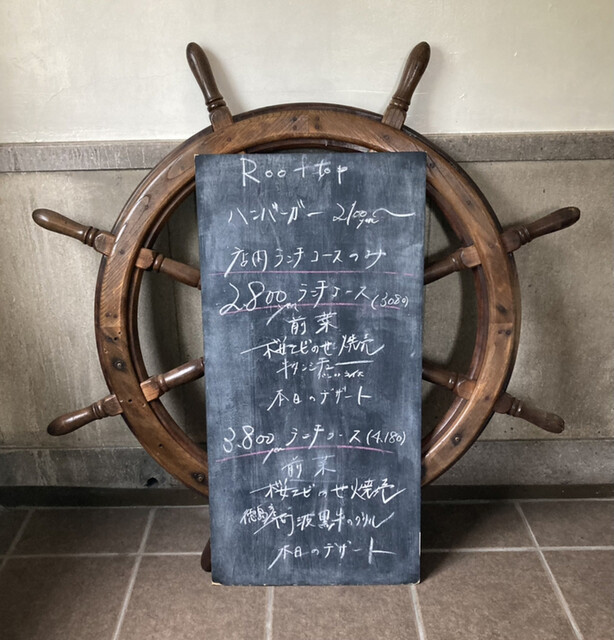 Rooftop
ハンバーガー 2100yen〜
店内ランチコースのみ
2.800yen ランチコース (3080)
前菜
桜エビのせ焼売
本日のデザート
3.800yen ランチコース (4.180)
前菜
桜エビのせ焼売
徳島産 阿波黒牛のグリル
本日のデザート